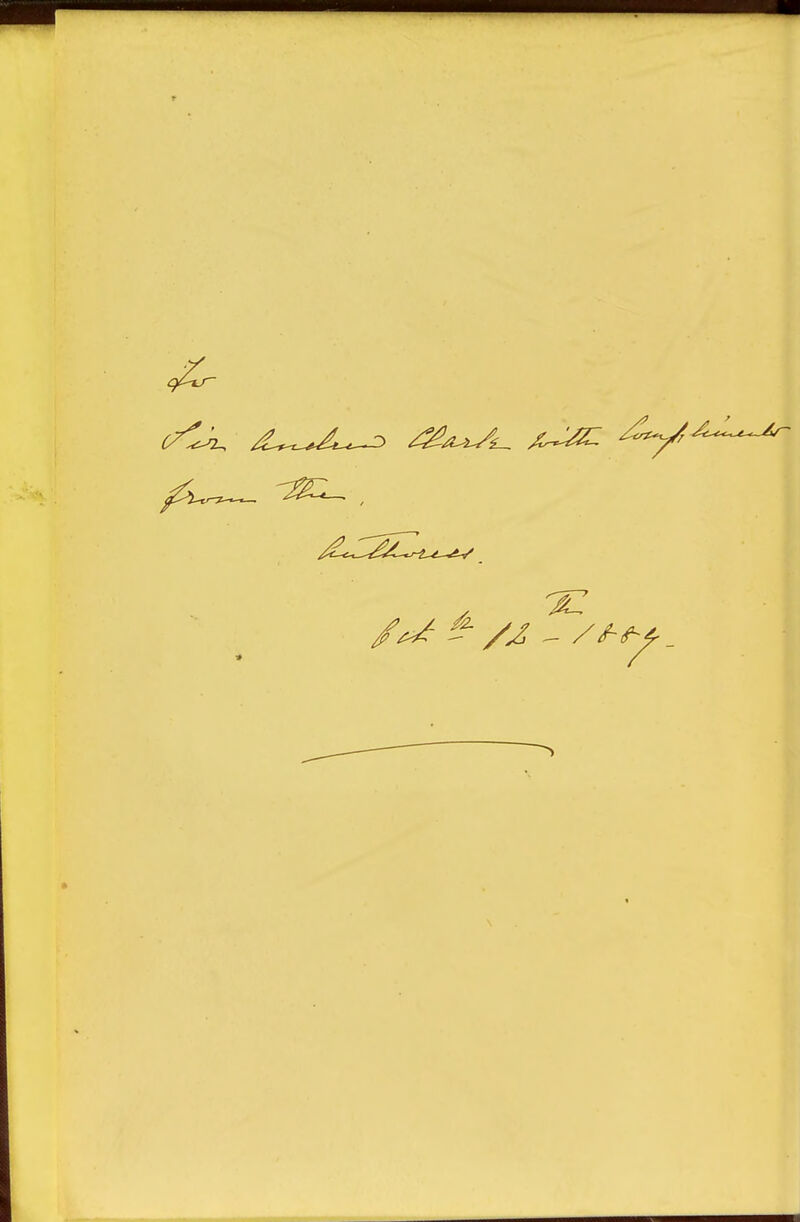 To
Sir Andrew Clark with Compliments
from The,
Authoress.
Oct 12 - th 1887.